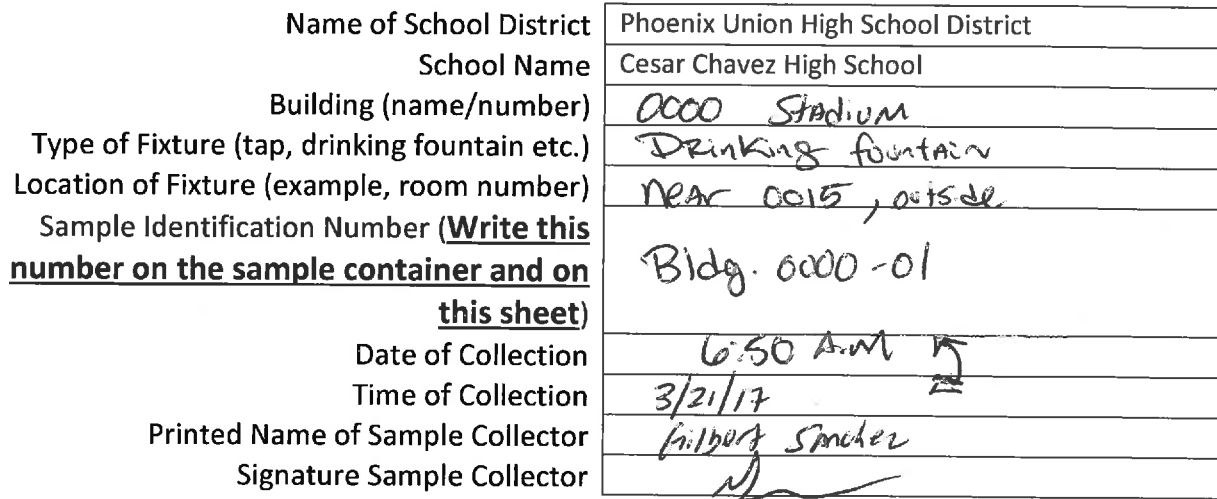 Name of School District Phoenix Union High School District
School Name Cesar Chavez High School
Building (name/number) 0000 Stadium
Type of Fixture (tap, drinking fountain etc.) Drinking fountain
Location of Fixture (example, room number) near 0015, outside
Sample Identification Number (Write this
number on the sample container and on
this sheet) Bldg. 0000-01
Date of Collection 6:50 A.M
Time of Collection 3/21/17
Printed Name of Sample Collector Gilbert Sanchez
Signature Sample Collector